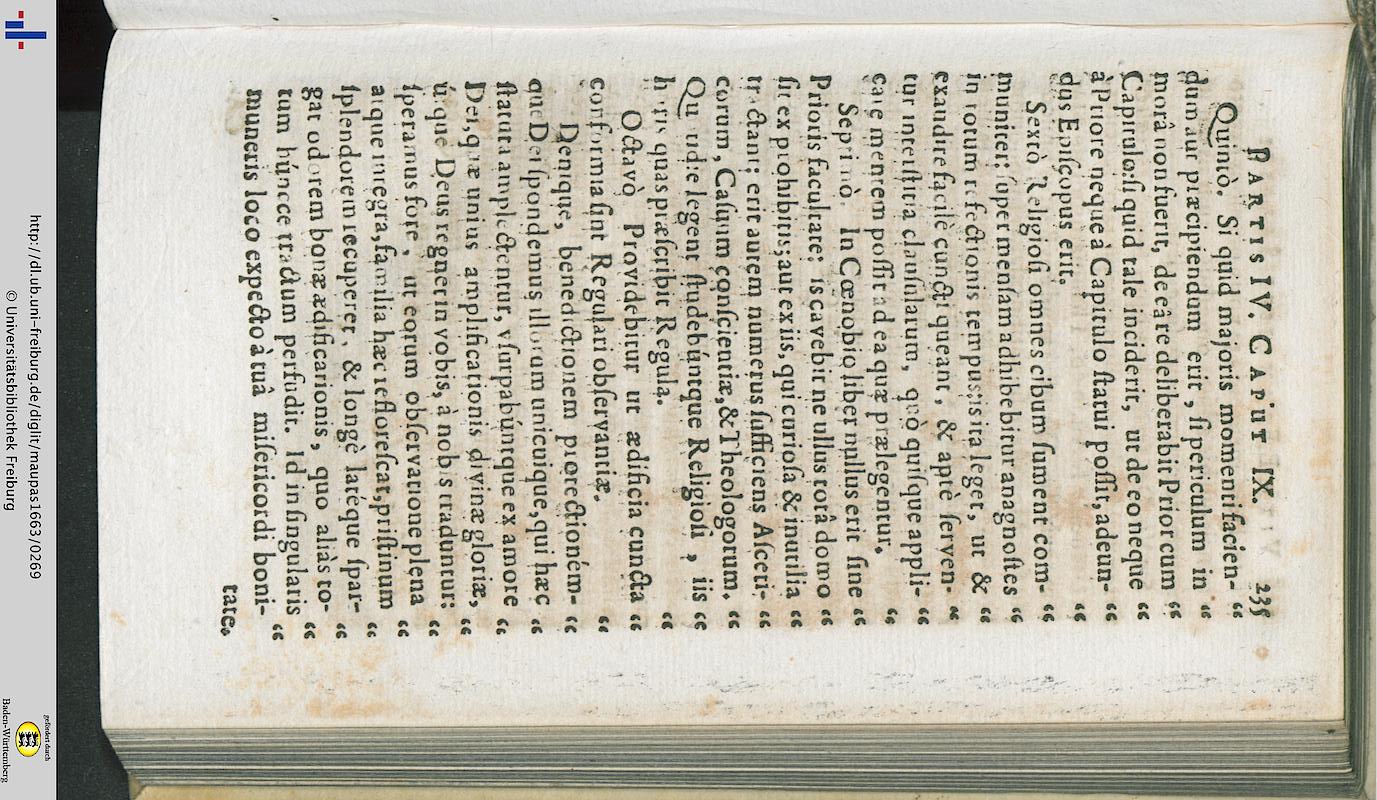 PARTIS IV. CAPUT IX. 235
Quintò. Si quid majoris momenti facien- “
dum aut præcipiendum erit, si periculum in “
morâ non fuerit, de eâ re deliberabit Prior cum “
Capitulo: si quid tale inciderit, ut de eo neque “
à Priore neque à Capitulo statui possit, adeun- “
dus Episcopus erit. “
Sextò. Religiosi omnes cibum sument com- “
muniter; super mensam adhibebitur anagnostes “
in totum refectionis tempus: is ita leget, ut & “
exaudire facilè cuncti queant, & aptè serven- “
tur interstitia clausularum, quò quisque appli- “
care mentem possit ad ea quæ prælegentur. “
Septimò. In Cœnobio liber nullus erit sine “
Prioris facultate; is cavebit ne ullus totâ domo “
sit ex prohibitis; aut ex iis, qui curiosa & inutilia “
tractant; erit autem numerus sufficiens Asceti- “
corum, Casuum conscientiæ, & Theologorum. “
Quotidie legent studebúntque Religiosi, iis “
horis quas præscribit Regula. “
Octavò. Providebitur ut ædificia cuncta “
conformia sint Regulari observantiæ. “
Denique, benedictionem protectioném- “
que Dei spondemus illorum unicuique, qui hæc “
statuta amplectentur, vsurpabúntque ex amore “
Dei, quæ unius amplificationis divinæ gloriæ, “
útque Deus regnet in vobis, à nobis traduntur: “
speramus fore, ut eorum observatione plena “
atque integra, familia hæc reflorescat, pristinum “
splendorem recuperet, & longè latéque spar- “
gat odorem bonæ ædificationis, quo aliàs to- “
tum húncce tractum perfudit. Id in singularis “
muneris loco expecto à tuâ misericordi boni- “
tate.
http://dl.ub.uni-freiburg.de/diglit/maupas1663/0269
© Universitätsbibliothek Freiburg
gefördert durch
Baden-Württemberg